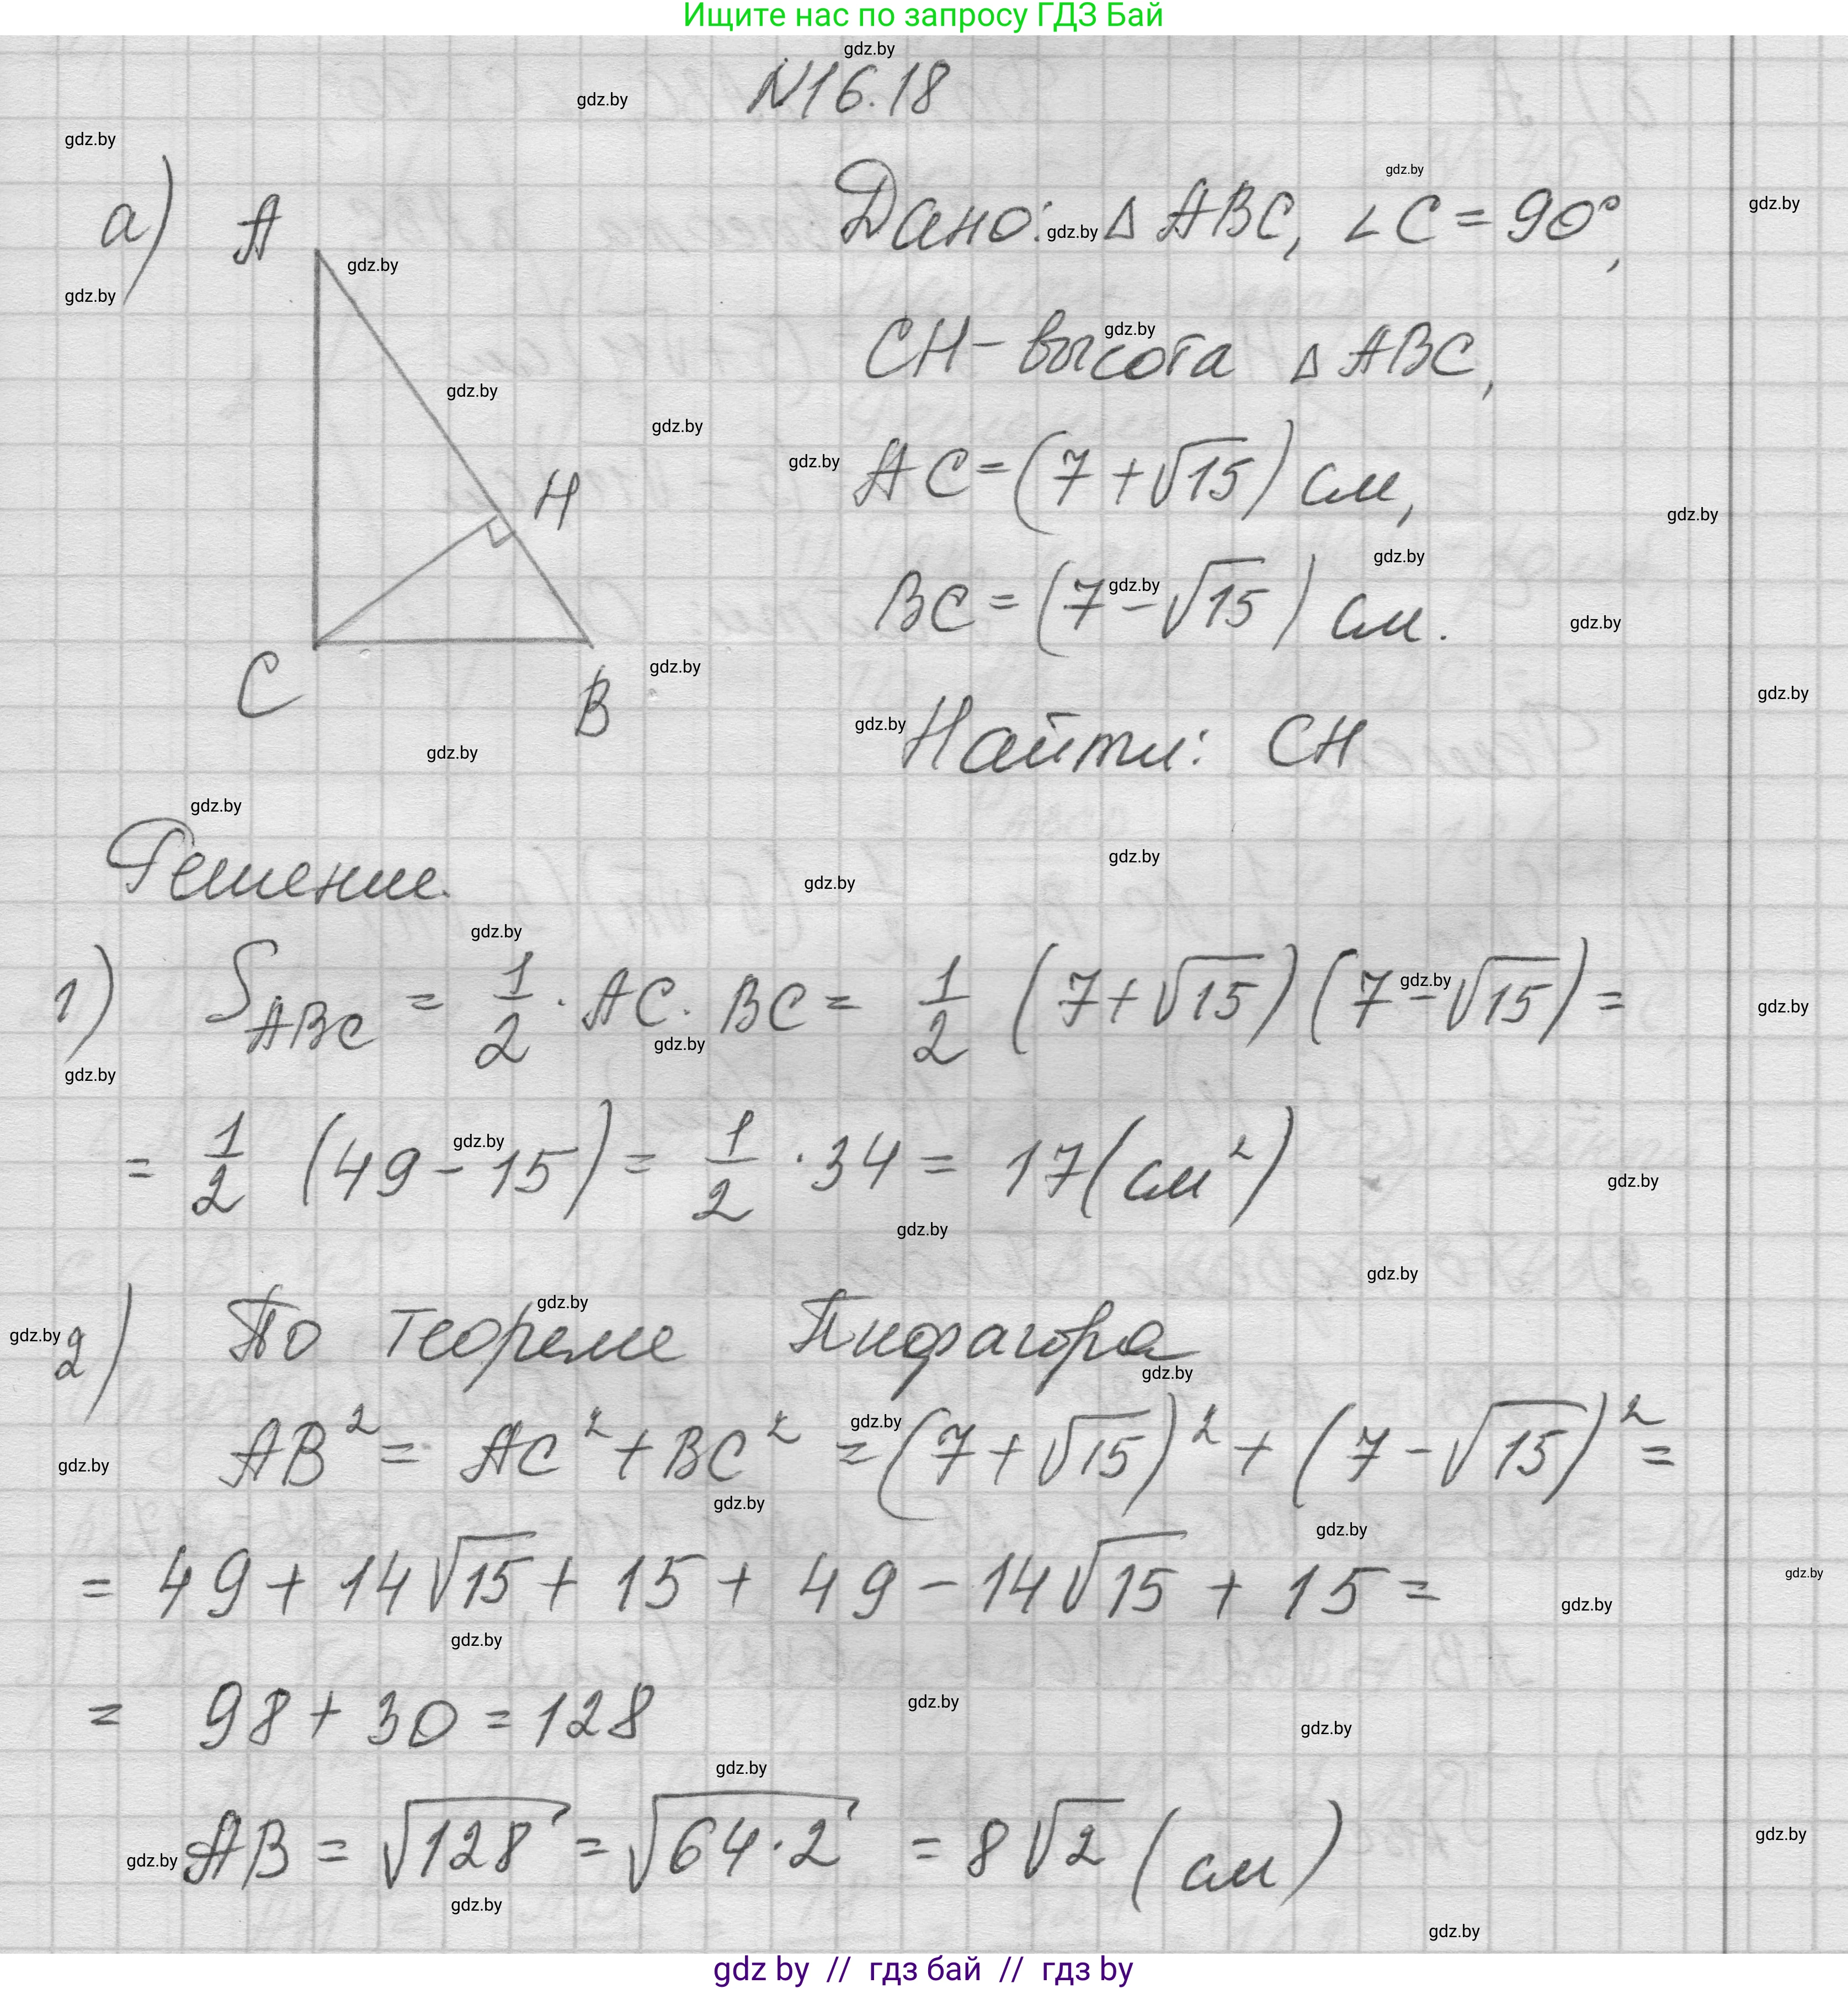 Ищите нас по запросу ГДЗ Бай
N16.18
а) A
Дано: △ ABC, ∠C = 90°,
CH - высота △ ABC,
AC = (7 + √15) см,
H
BC = (7 - √15) см.
C B
Найти: CH
Решение.
1) S_ABC = 1/2 · AC · BC = 1/2 (7 + √15)(7 - √15) =
= 1/2 (49 - 15) = 1/2 · 34 = 17 (см²)
2) По теореме Пифагора
AB² = AC² + BC² = (7 + √15)² + (7 - √15)² =
= 49 + 14√15 + 15 + 49 - 14√15 + 15 =
= 98 + 30 = 128
AB = √128 = √64·2 = 8√2 (см)
gdz by // гдз бай // гдз by